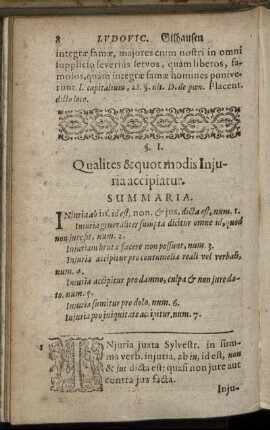 8 LVDOVIC. Gilhausen
integræ famæ, majores enim nostri in omni
supplicio severiùs servos, quàm liberos, fa-
mosos, quàm integræ famæ homines punive-
runt l. capitalium, 28. §. ult. D. de pœn. Placent.
dicto loco.
§. I.
Qualites & quot modis Inju-
ria accipiatur.
SUMMARIA.
INjuria ab in, id est, non. & jus, dicta est, num. 1.
Injuria generaliter sumpta dicitur omne id, quod
non jure fit, num. 2.
Injuriam bruta facere non possunt, num. 3.
Injuria accipitur pro contumelia reali vel verbali,
num. 4.
Injuria accipitur pro damno, culpa & non jure da-
to. num. 5.
Injuria sumitur pro dolo. num. 6.
Injuria pro iniquitate accipitur, num. 7.
1 INjuria juxta Sylvestr. in sum-
ma verb. injuria, ab in, id est, non
& jus dicta est: quasi non jure aut
contra jus facta.
Inju-